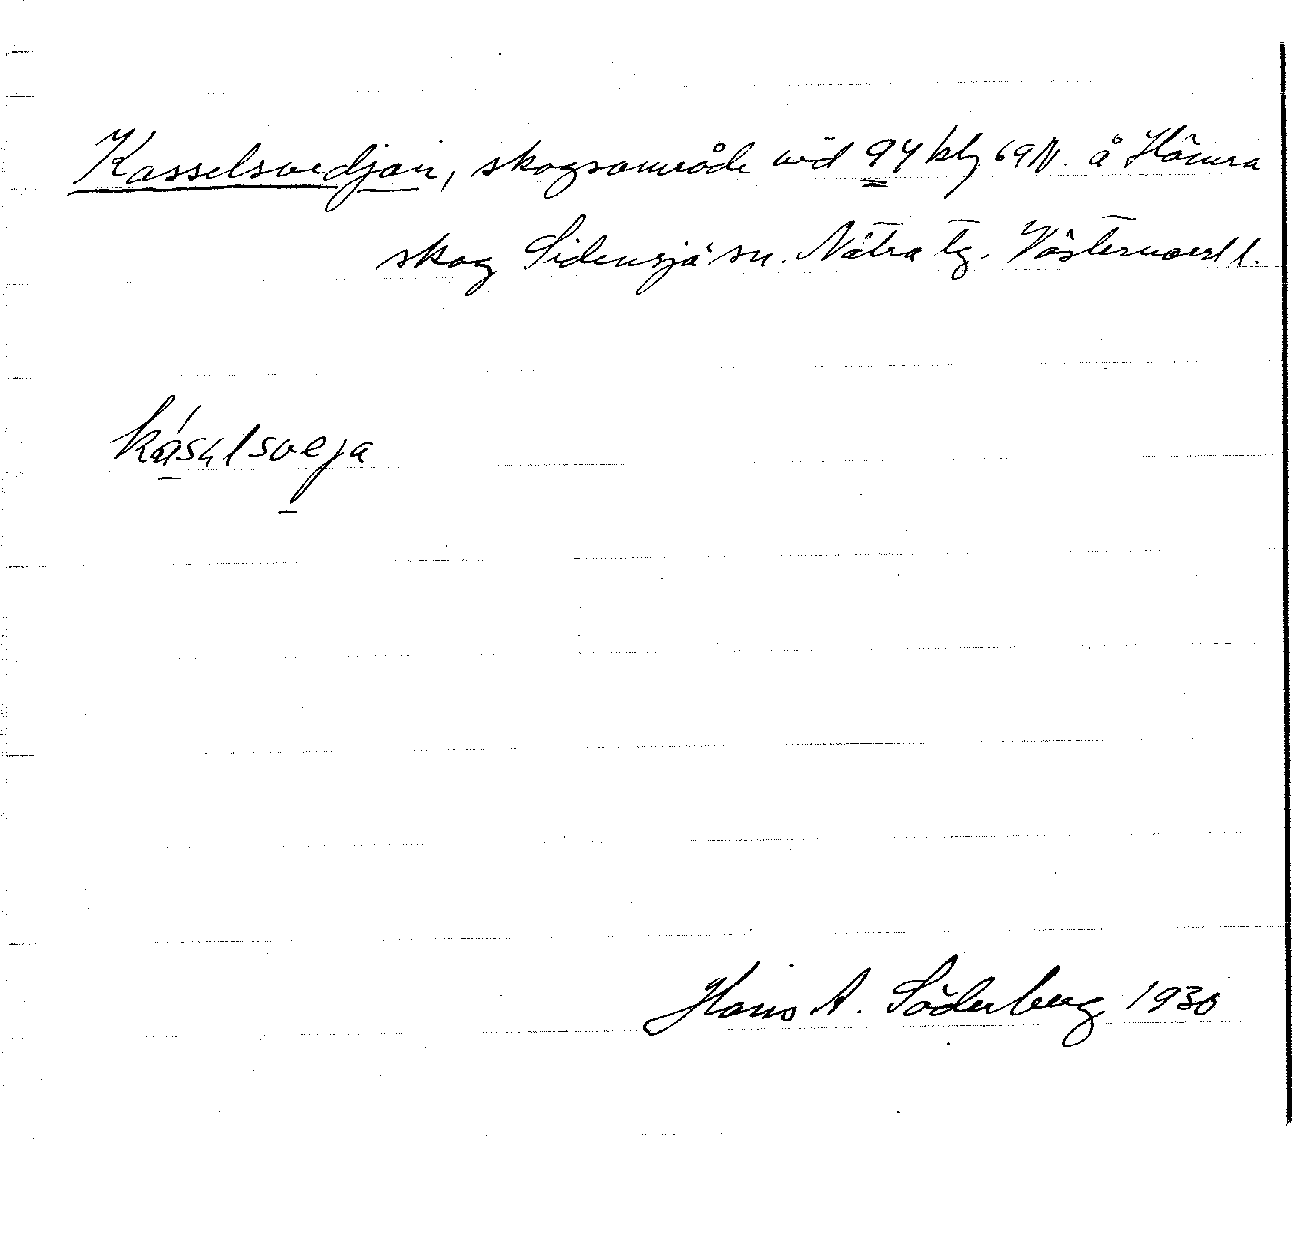 Kasselsvedjan, skogsområde vid 94 kbl 69 N. å Hämra
skog Sidensjö sn. Nätra tg. Västernorrl l.
kásɥlsveja
Hans A. Söderberg 1930